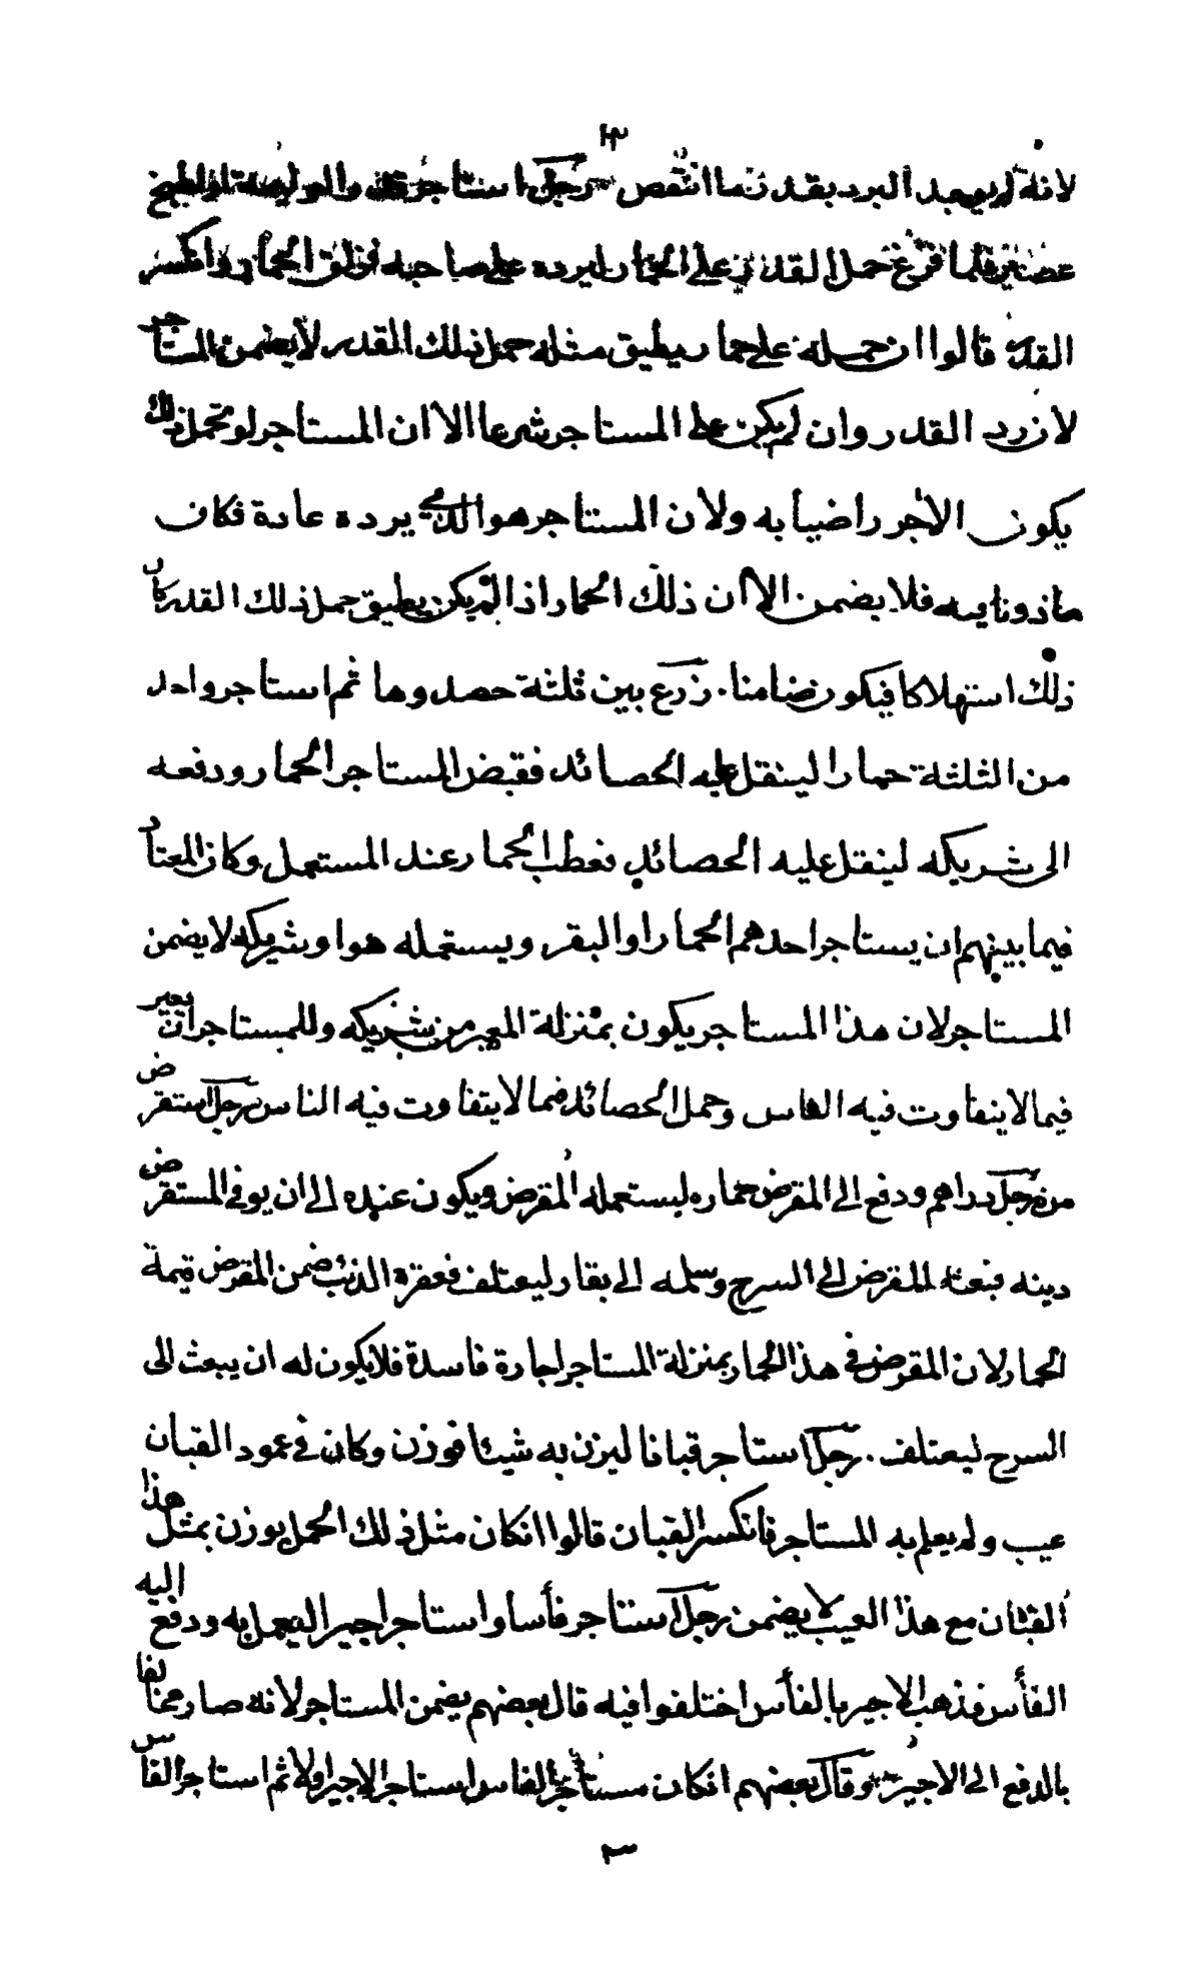 ٢٣
لانه لم يجد البرد بقدر ما انتقص رجل استاجر قدرا والوليمة اوليطبخ
عصيرا فلما فرغ حمل القدر على الحمار ليرده على صاحبه فزلق الحمار وانكسر
القدر قالوا ان حمله على حمار يطيق مثله حمل ذلك القدر لا يضمن المستاجر
لان رد القدر وان لم يكن على المستاجر شرعا الا ان المستاجر لو تحمل ذلك
يكون الآجر راضيا به ولان المستاجر هو الذي يرده عادة فكان
ماذونا فيه فلا يضمن الا ان ذلك الحمار اذا لم يكن يطيق حمل ذلك القدر كان
ذلك استهلاكا فيكون ضامنا. زرع بين ثلثة حصدوها ثم استاجر واحد
من الثلثة حمارا لينقل عليه الحصائد فقبض المستاجر الحمار ودفعه
الى شريكه لينقل عليه الحصائد فعطب الحمار عند المستعمل وكان المعتاد
فيما بينهم ان يستاجر احدهم الحمار او البقر ويستعمله هو او شريكه لا يضمن
المستاجر لان هذا المستاجر يكون بمنزلة المعير من شريكه وللمستاجر ان يعير
فيما لا يتفاوت فيه الناس وحمل الحصائد مما لا يتفاوت فيه الناس رجل استقرض
من رجل دراهم ودفع الى المقرض حماره ليستعمله المقرض ويكون عنده الى ان يوفى المستقرض
دينه فبعثه المقرض الى السرح وسلمه الى بقار ليعتلف فعقره الذئب ضمن المقرض قيمة
الحمار لان المقرض في هذا الحمار بمنزلة المستاجر اجارة فاسدة فلا يكون له ان يبعث الى
السرح ليعتلف. رجل استاجر قبانا ليزن به شيئا فوزن وكان في عمود القبان
عيب ولم يعلم به المستاجر فانكسر القبان قالوا انكان مثل ذلك الحمل يوزن بمثل هذا
القبان مع هذا العيب لا يضمن رجل استاجر فأسا واستاجر اجيرا ليعمل به ودفع اليه
الفأس فذهب الاجير بالفأس اختلفوا فيه قال بعضهم يضمن المستاجر لانه صار مخالفا
بالدفع الى الاجير وقال بعضهم انكان مستاجر الفاس استاجر الاجير اولا ثم استاجر الفاس
٣